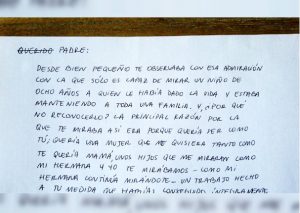 QUERIDO PADRE:
DESDE BIEN PEQUEÑO TE OBSERVABA CON ESA ADMIRACIÓN
CON LA QUE SÓLO ES CAPAZ DE MIRAR UN NIÑO DE
OCHO AÑOS A QUIEN LE HABÍA DADO LA VIDA Y ESTABA
MANTENIENDO A TODA UNA FAMILIA. Y, ¿POR QUÉ
NO RECONOCERLO? LA PRINCIPAL RAZÓN POR LA
QUE TE MIRABA ASÍ ERA PORQUE QUERÍA SER COMO
TÚ; QUERÍA UNA MUJER QUE ME QUISIERA TANTO COMO
TE QUERÍA MAMÁ, UNOS HIJOS QUE ME MIRARAN COMO
MI HERMANA Y YO TE MIRÁBAMOS - COMO MI
HERMANA CONTINÚA MIRÁNDOTE -, UN TRABAJO HECHO
A TU MEDIDA QUE HABÍAS CONSEGUIDO ÍNTEGRAMENTE